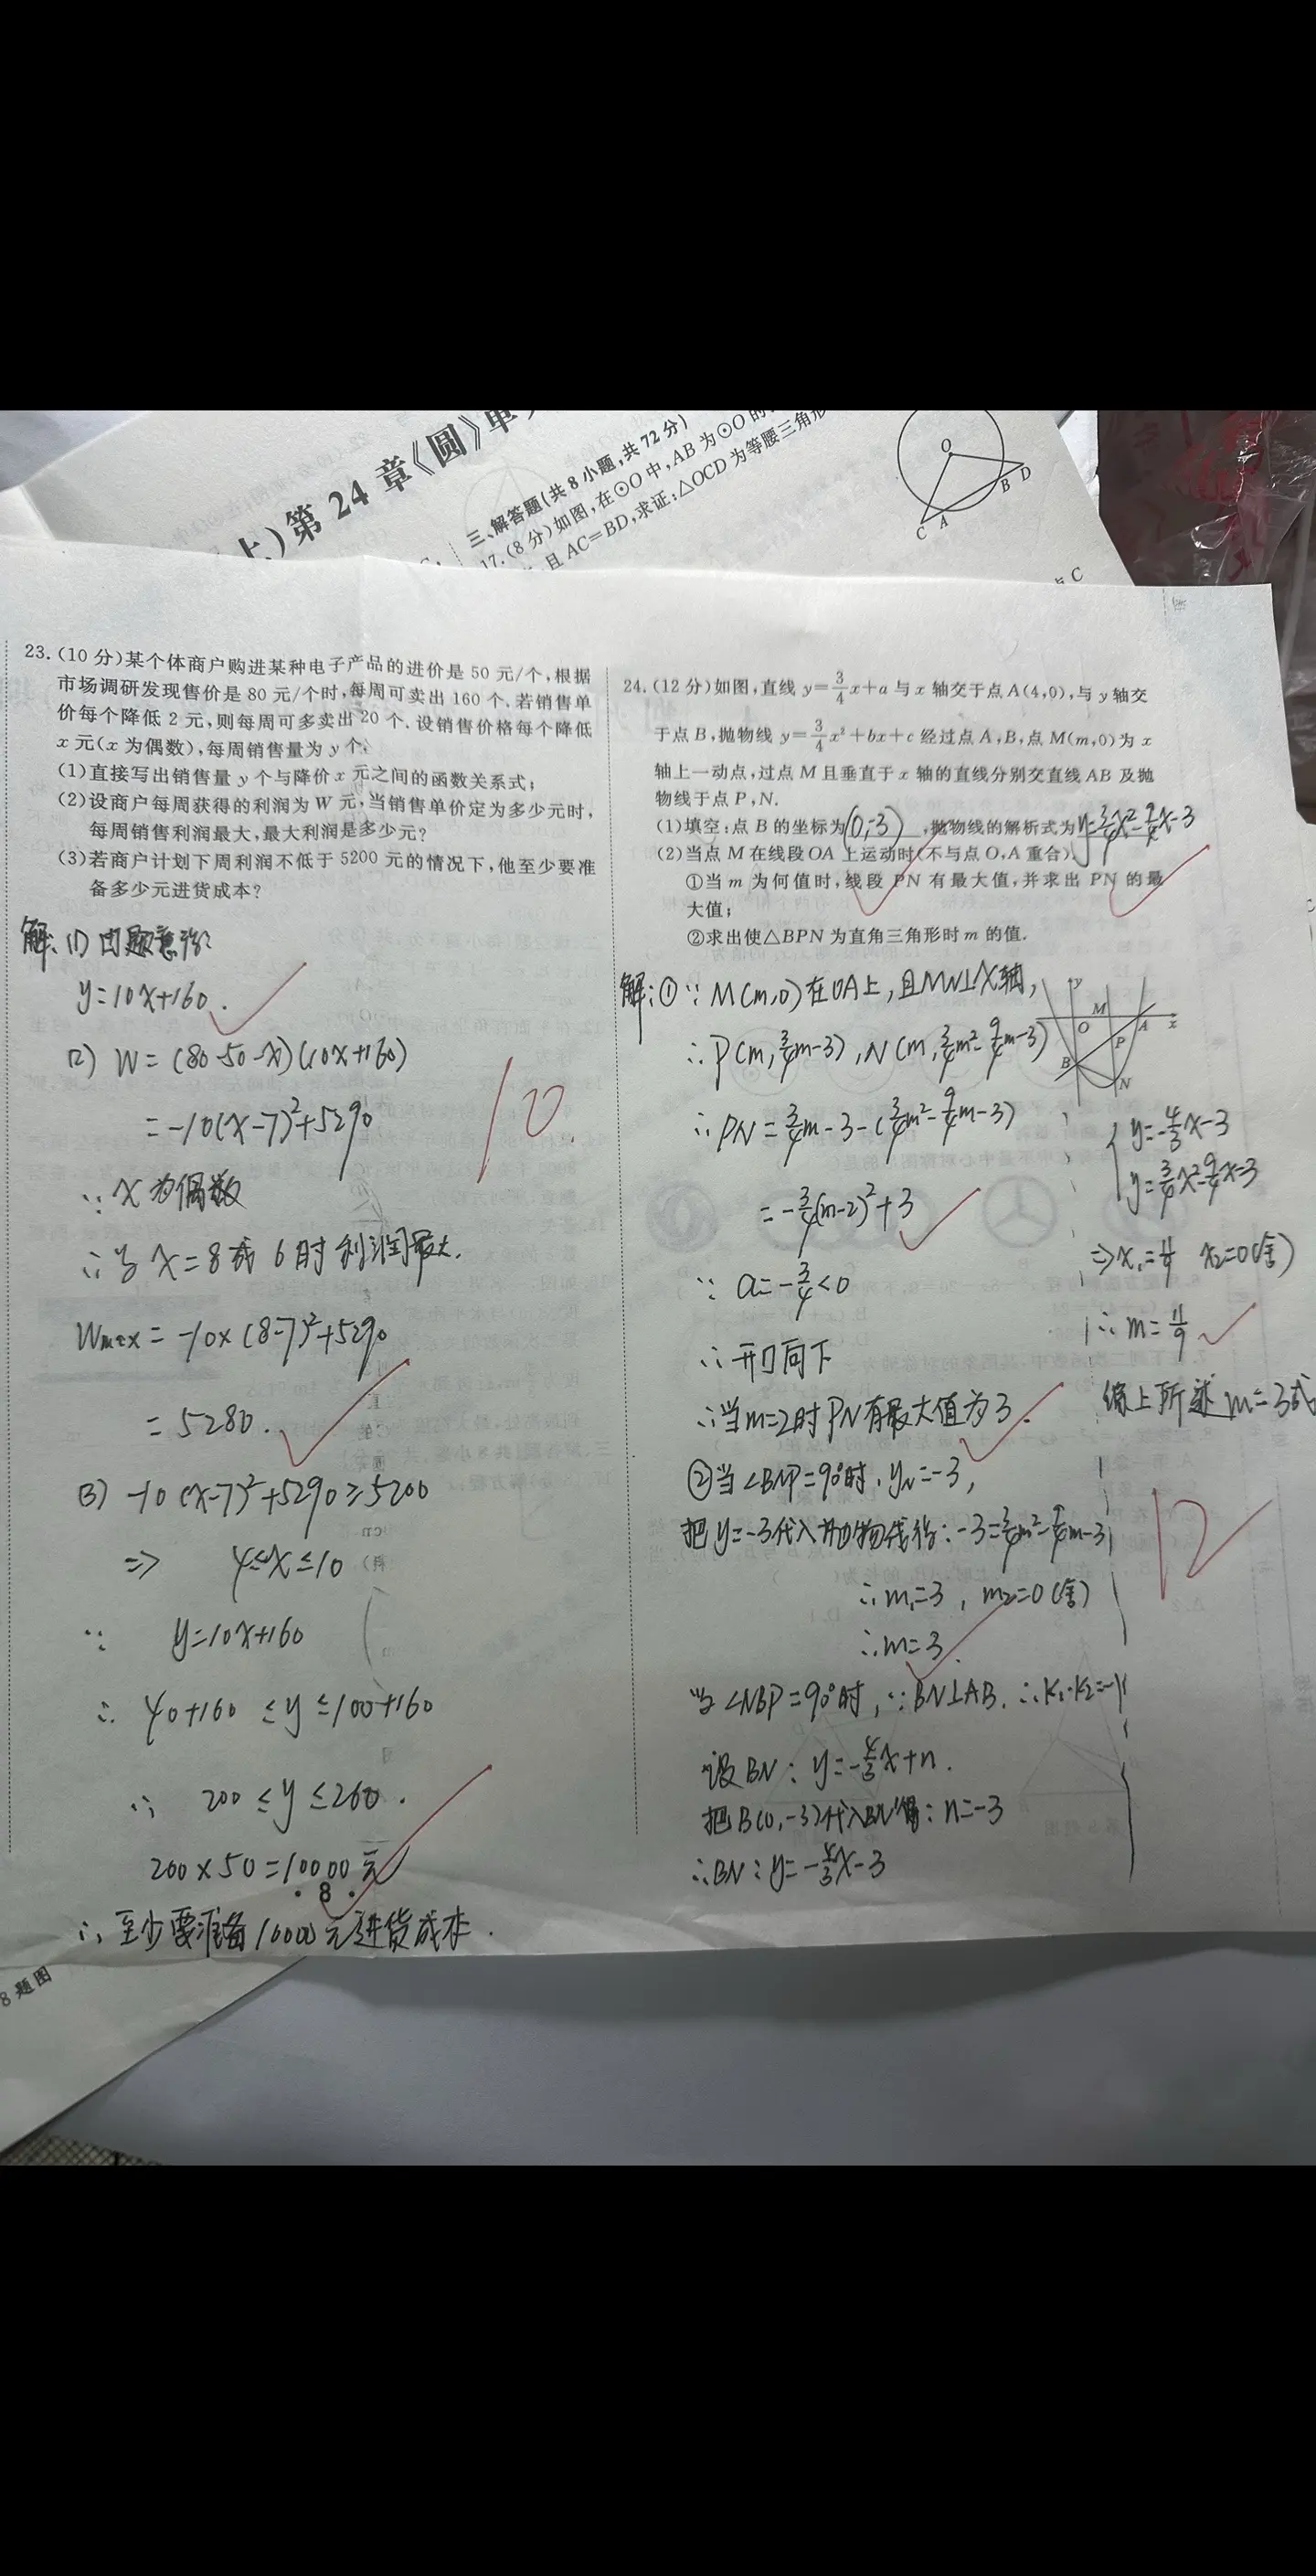 上)第 24 章《圆》单
三、解答题(共 8 小题,共 72 分)
17.(8 分)如图,在⊙O 中,AB 为⊙O 的
且 AC=BD,求证:△OCD 为等腰三角形
O
B
D
C
A
点 C
23.(10 分)某个体商户购进某种电子产品的进价是 50 元/个,根据
市场调研发现售价是 80 元/个时,每周可卖出 160 个.若销售单
价每个降低 2 元,则每周可多卖出 20 个.设销售价格每个降低
x 元(x 为偶数),每周销售量为 y 个,
(1)直接写出销售量 y 个与降价 x 元之间的函数关系式;
(2)设商户每周获得的利润为 W 元,当销售单价定为多少元时,
每周销售利润最大,最大利润是多少元?
(3)若商户计划下周利润不低于 5200 元的情况下,他至少要准
备多少元进货成本?
解:(1)由题意得:
y=10x+160.
(2) W=(80-50-x)(10x+160)
=-10(x-7)²+5290
∵ x 为偶数
∴当 x=8或 6 时 利润最大.
Wmax=-10×(8-7)²+5290
=5280.
(3) -10(x-7)²+5290≥5200
⇒ 4≤x≤10
∵ y=10x+160
∴ 40+160 ≤y≤100+160
∴ 200≤y≤260.
200×50=10000元
· 8 ·
∴ 至少要准备10000元进货成本.
10
24.(12 分)如图,直线 y=3/4x+a 与 x 轴交于点 A(4,0),与 y 轴交
于点 B,抛物线 y=3/4x²+bx+c 经过点 A,B,点 M(m,0)为 x
轴上一动点,过点 M 且垂直于 x 轴的直线分别交直线 AB 及抛
物线于点 P,N.
(1)填空:点 B 的坐标为(0,-3),抛物线的解析式为y=3/4x²-9/4x-3
(2)当点 M 在线段 OA 上运动时(不与点 O,A 重合).
①当 m 为何值时,线段 PN 有最大值,并求出 PN 的最
大值;
②求出使△BPN 为直角三角形时 m 的值.
解:①∵M(m,0)在OA上,且MN⊥X轴,
∴P(m,3/4m-3),N(m,3/4m²-9/4m-3)
∴PN=3/4m-3-(3/4m²-9/4m-3)
=-3/4(m-2)²+3
∵ a=-3/4<0
∴开口向下
∴当m=2时PN有最大值为3.
②当∠BNP=90°时,yN=-3,
把y=-3代入抛物线得:-3=3/4m²-9/4m-3
∴m₁=3, m₂=0(舍)
∴m=3.
当∠NBP=90°时,∵BN⊥AB.∴K₁·K₂=-1
设BN:y=-4/3x+n.
把B(0,-3)代入BN得:n=-3
∴BN:y=-4/3x-3
y
M
O
A
x
P
B
N
y=-4/3x-3
y=3/4x²-9/4x-3
⇒x₁=11/9 x₂=0(舍)
∴m=11/9
综上所述m=3或
12
8 题图